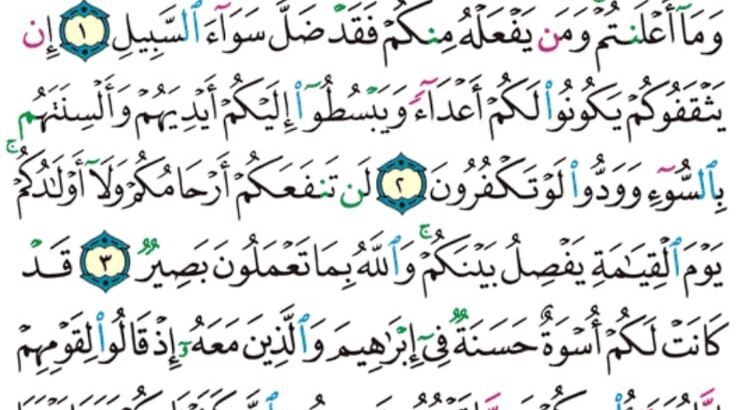 وَمَآ أَعْلَنتُمْ ۚ وَمَن يَفْعَلْهُ مِنكُمْ فَقَدْ ضَلَّ سَوَآءَ ٱلسَّبِيلِ ١ إِن
يَثْقَفُوكُمْ يَكُونُوا۟ لَكُمْ أَعْدَآءً وَيَبْسُطُوٓا۟ إِلَيْكُمْ أَيْدِيَهُمْ وَأَلْسِنَتَهُم
بِٱلسُّوٓءِ وَوَدُّوا۟ لَوْ تَكْفُرُونَ ٢ لَن تَنفَعَكُمْ أَرْحَامُكُمْ وَلَآ أَوْلَٰدُكُمْ ۚ
يَوْمَ ٱلْقِيَٰمَةِ يَفْصِلُ بَيْنَكُمْ ۚ وَٱللَّهُ بِمَا تَعْمَلُونَ بَصِيرٌ ٣ قَدْ
كَانَتْ لَكُمْ أُسْوَةٌ حَسَنَةٌ فِىٓ إِبْرَٰهِيمَ وَٱلَّذِينَ مَعَهُۥٓ إِذْ قَالُوا۟ لِقَوْمِهِمْ